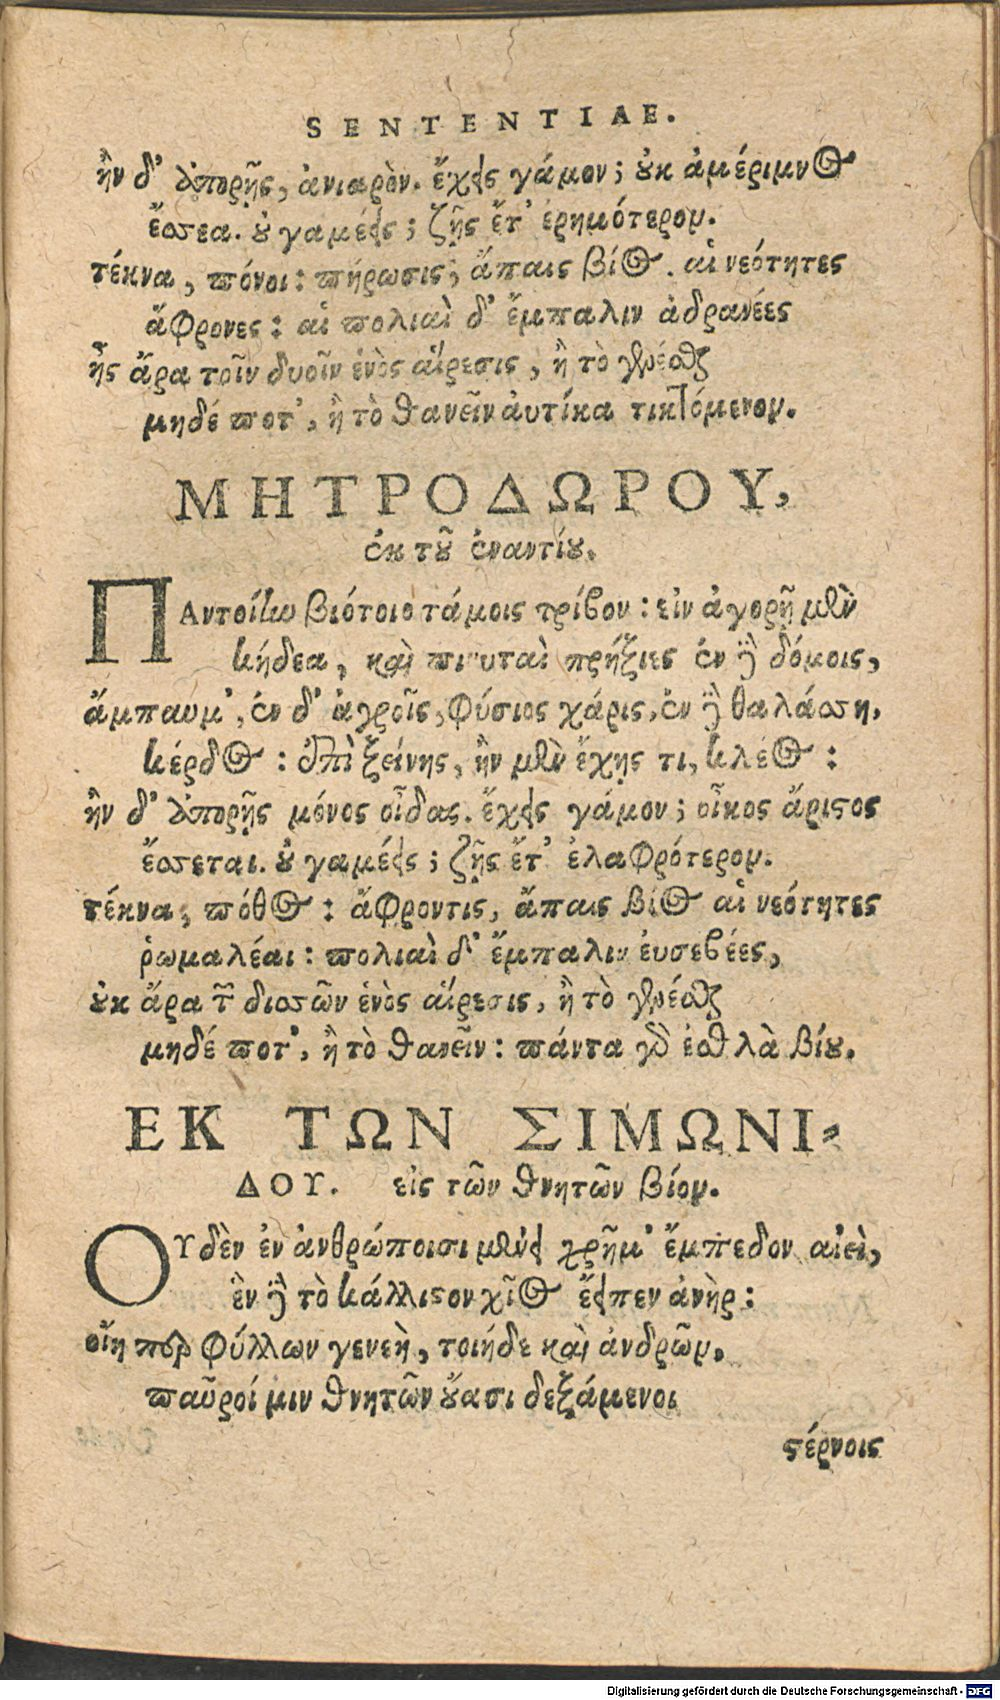 SENTENTIAE.
ἢν δ' ἀπορῇς, ἀνιαρὸν. ἔχεις γάμον; οὐκ ἀμέριμνος
ἔσσεαι. οὐ γαμέεις; ζῇς ἔτ' ἐρημότερον.
τέκνα, πόνοι: πήρωσις, ἄπαις βίος. αἱ νεότητες
ἄφρονες: αἱ πολιαὶ δ' ἔμπαλιν ἀδρανέες
ἦς ἄρα τοῖν δυοῖν ἑνὸς αἵρεσις, ἢ τὸ γενέσθαι
μηδέ ποτ', ἢ τὸ θανεῖν αὐτίκα τικτόμενον.
ΜΗΤΡΟΔΩΡΟΥ,
ἐκ τοῦ ἐναντίου.
ΠΑντοίην βιότοιο τάμοις τρίβον: εἰν ἀγορῇ μὲν
κήδεα, καὶ πινυταὶ πρήξιες ἐν δὲ δόμοις,
ἄμπαυμ', ἐν δ' ἀγροῖς, φύσιος χάρις, ἐν δὲ θαλάσσῃ,
κέρδος: ἐπὶ ξείνης, ἢν μὲν ἔχῃς τι, κλέος:
ἢν δ' ἀπορῇς μόνος οἶδας. ἔχεις γάμον; οἶκος ἄριστος
ἔσσεται. οὐ γαμέεις; ζῇς ἔτ' ἐλαφρότερον.
τέκνα, πόθος: ἄφροντις, ἄπαις βίος αἱ νεότητες
ῥωμαλέαι: πολιαὶ δ' ἔμπαλιν εὐσεβέες,
οὐκ ἄρα τῶν δισσῶν ἑνὸς αἵρεσις, ἢ τὸ γενέσθαι
μηδέ ποτ', ἢ τὸ θανεῖν: πάντα γὰρ ἐσθλὰ βίου.
ΕΚ ΤΩΝ ΣΙΜΩΝΙ-
ΔΟΥ. εἰς τῶν θνητῶν βίον.
ΟΥδὲν ἐν ἀνθρώποισι μένει χρῆμ' ἔμπεδον αἰεὶ,
ἓν δὲ τὸ κάλλιστον χῖος ἔειπεν ἀνὴρ:
οἵη περ φύλλων γενεὴ, τοιήδε καὶ ἀνδρῶν,
παῦροί μιν θνητῶν οὔασι δεξάμενοι
στέρνοις
Digitalisierung gefördert durch die Deutsche Forschungsgemeinschaft - DFG